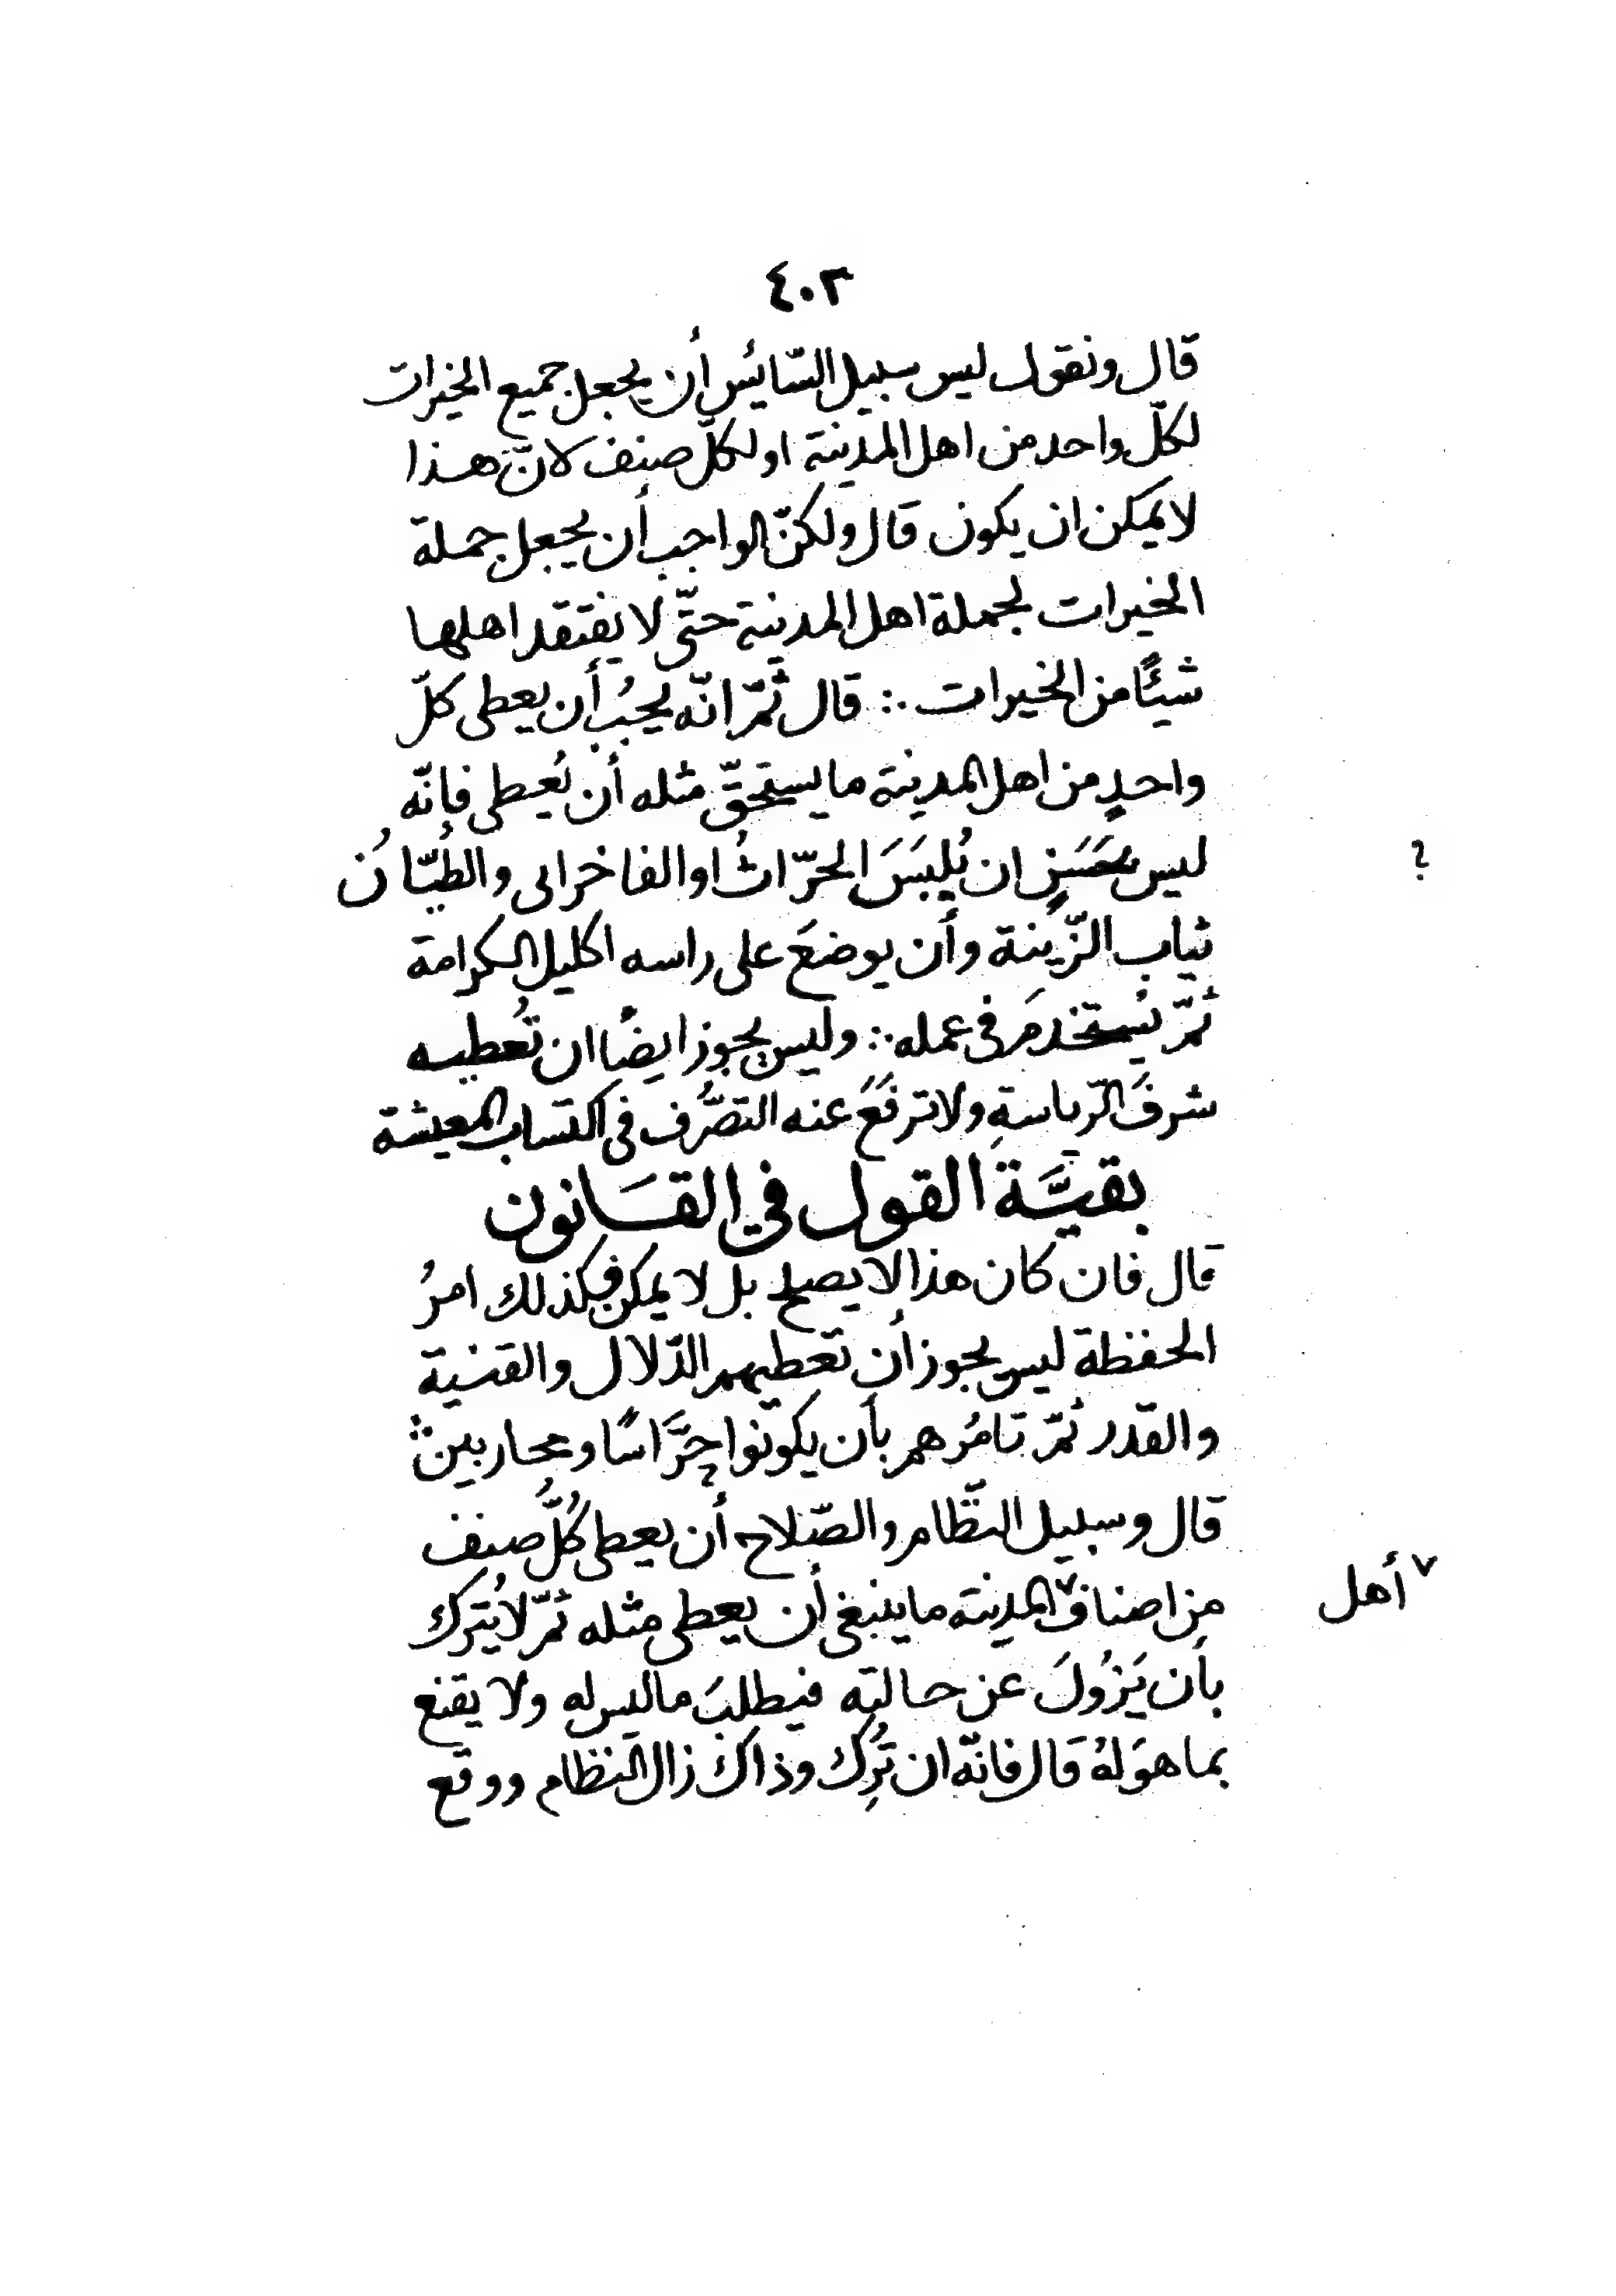 ٤٠٢
قال ونقول ليس سبيل السّايُس أن يجعل جميع الخيرات
لكلّ واحد من اهل المدينة او لكلّ صنف لانّ هذا
لا يمكن ان يكون قال ولكنّ الواجب أن يجعل جملة
الخيرات لجملة اهل المدينة حتّى لا يفتقد اهلها
شيئًا من الخيرات ∴ قال ثمّ انّه يجبُ أن يعطى كلّ
واحدٍ من اهل المدينة ما يستحقّ مثله أن يُعطى فانّه
ليس بحَسَنٍ ان يُلبَسَ الحرّاثُ او الفاخرانى والطُيّانُ
ثياب الزّينة وأن يوضعَ على راسه اكليل الكرامة
ثمّ يُستخدمَ فى عمله ∴ وليس يجوز ايضًا ان تُعطيه
شرفَ الرّياسةِ ولا ترفَعَ عنه التصَّرُف فى اكتساب المعيشة
بقيَّة القول في القَانون
قال فان كان هذا لا يصلح بل لا يمكن فكذلك امرُ
الحفظة ليس يجوز أن تعطيهم الدّلال والقنية
والقدر ثمّ تامُرهم بأن يكونوا حرَّاسًا ومحاربين ∴
قال وسبيل النّظام والصّلاح أن يعطى كُلُّ صنف
من اصناف ٧ المدينة ما ينبغى أن يعطى مثله ثمّ لا يُترك
٧ أهل
بأن يَزُولَ عن حالته فيطلبَ ما ليس له ولا يقنع
بما هوَ لهُ قال فانّه ان تُرِك وذاك زال النظام ووقع
؟